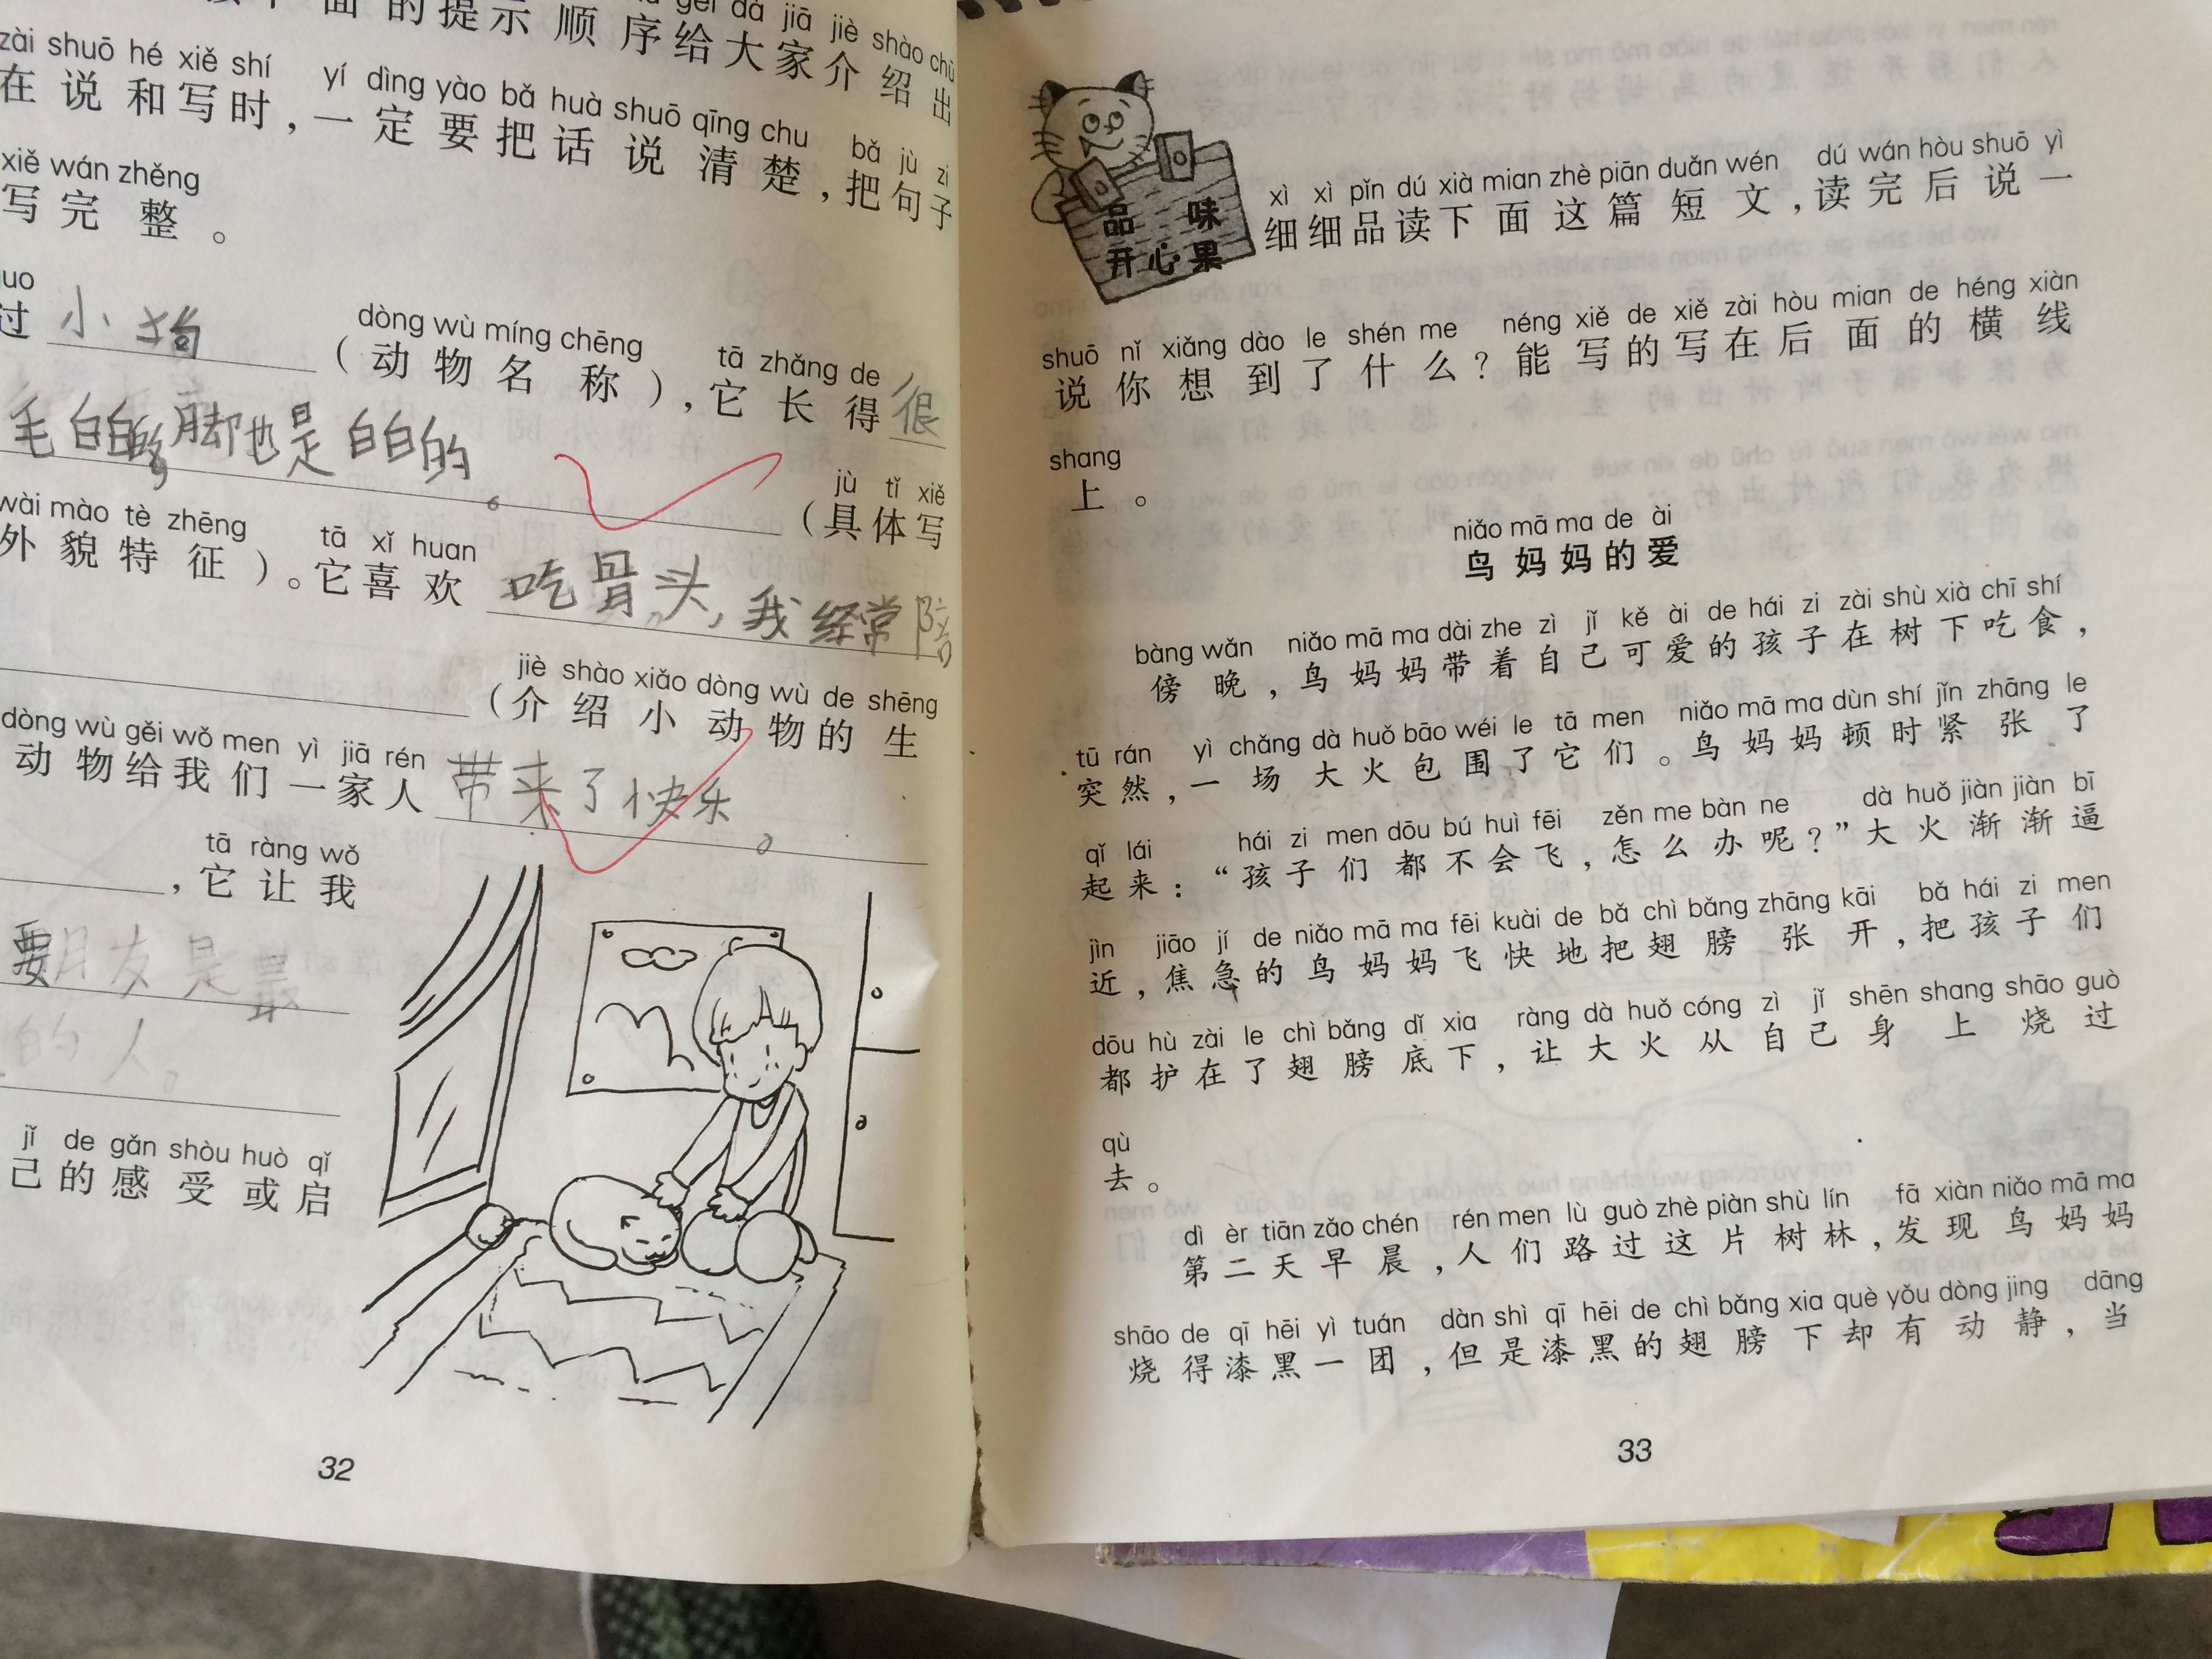 面 的 提 示 顺 序 给 大 家 介 绍 出
gěi dà jiā jiè shào chū
zài shuō hé xiě shí yí dìng yào bǎ huà shuō qīng chu bǎ jù zi
在 说 和 写 时 , 一 定 要 把 话 说 清 楚 , 把 句 子
xiě wán zhěng
写 完 整 。
过 小狗 ( 动 物 名 称 ) , 它 长 得 很
dòng wù míng chēng tā zhǎng de
毛白白的,脚也是白白的。
jù tǐ xiě
( 具 体 写
wài mào tè zhēng tā xǐ huan
外 貌 特 征 ) 。 它 喜 欢 吃骨头,我经常陪
jiè shào xiǎo dòng wù de shēng
( 介 绍 小 动 物 的 生
dòng wù gěi wǒ men yì jiā rén
动 物 给 我 们 一 家 人 带来了快乐。
tā ràng wǒ
, 它 让 我
朋友是最
的人。
jǐ de gǎn shòu huò qǐ
己 的 感 受 或 启
32
品 味
开 心 果
xì xì pǐn dú xià mian zhè piān duǎn wén dú wán hòu shuō yì
细 细 品 读 下 面 这 篇 短 文 , 读 完 后 说 一
shuō nǐ xiǎng dào le shén me néng xiě de xiě zài hòu mian de héng xiàn
说 你 想 到 了 什 么 ? 能 写 的 写 在 后 面 的 横 线
shang
上 。
niǎo mā ma de ài
鸟 妈 妈 的 爱
bàng wǎn niǎo mā ma dài zhe zì jǐ kě ài de hái zi zài shù xià chī shí
傍 晚 , 鸟 妈 妈 带 着 自 己 可 爱 的 孩 子 在 树 下 吃 食 ,
tū rán yì chǎng dà huǒ bāo wéi le tā men niǎo mā ma dùn shí jǐn zhāng le
突 然 , 一 场 大 火 包 围 了 它 们 。 鸟 妈 妈 顿 时 紧 张 了
qǐ lái hái zi men dōu bú huì fēi zěn me bàn ne dà huǒ jiàn jiàn bī
起 来 : “ 孩 子 们 都 不 会 飞 , 怎 么 办 呢 ? ” 大 火 渐 渐 逼
jìn jiāo jí de niǎo mā ma fēi kuài de bǎ chì bǎng zhāng kāi bǎ hái zi men
近 , 焦 急 的 鸟 妈 妈 飞 快 地 把 翅 膀 张 开 , 把 孩 子 们
dōu hù zài le chì bǎng dǐ xia ràng dà huǒ cóng zì jǐ shēn shang shāo guò
都 护 在 了 翅 膀 底 下 , 让 大 火 从 自 己 身 上 烧 过
qù
去 。
dì èr tiān zǎo chén rén men lù guò zhè piàn shù lín fā xiàn niǎo mā ma
第 二 天 早 晨 , 人 们 路 过 这 片 树 林 , 发 现 鸟 妈 妈
shāo de qī hēi yì tuán dàn shì qī hēi de chì bǎng xia què yǒu dòng jing dāng
烧 得 漆 黑 一 团 , 但 是 漆 黑 的 翅 膀 下 却 有 动 静 , 当
33